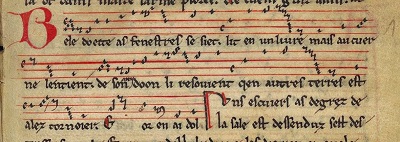 Bele doette as fenestres se siet. lit en un liure mais au cuer
ne lentient. de son ami doon li resouient qen autres terres est
alez tornoier. E or en ai dol
Vns escuiers as degrez de
la sale est dessenduz